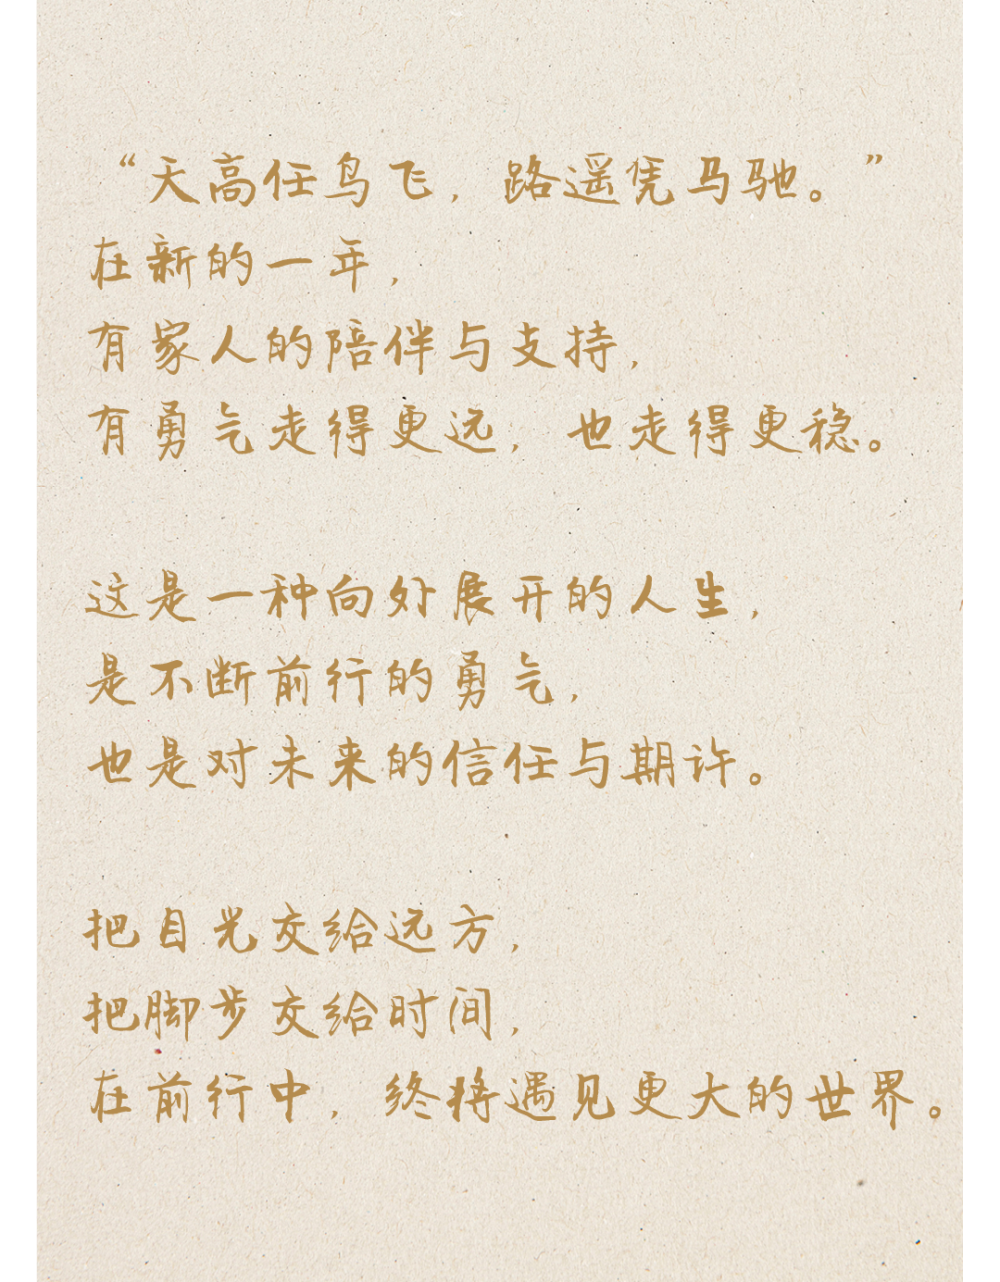 “天高任鸟飞，路遥凭马驰。”
在新的一年，
有家人的陪伴与支持，
有勇气走得更远，也走得更稳。
这是一种向外展开的人生，
是不断前行的勇气，
也是对未来的信任与期许。
把目光交给远方，
把脚步交给时间，
在前行中，终将遇见更大的世界。